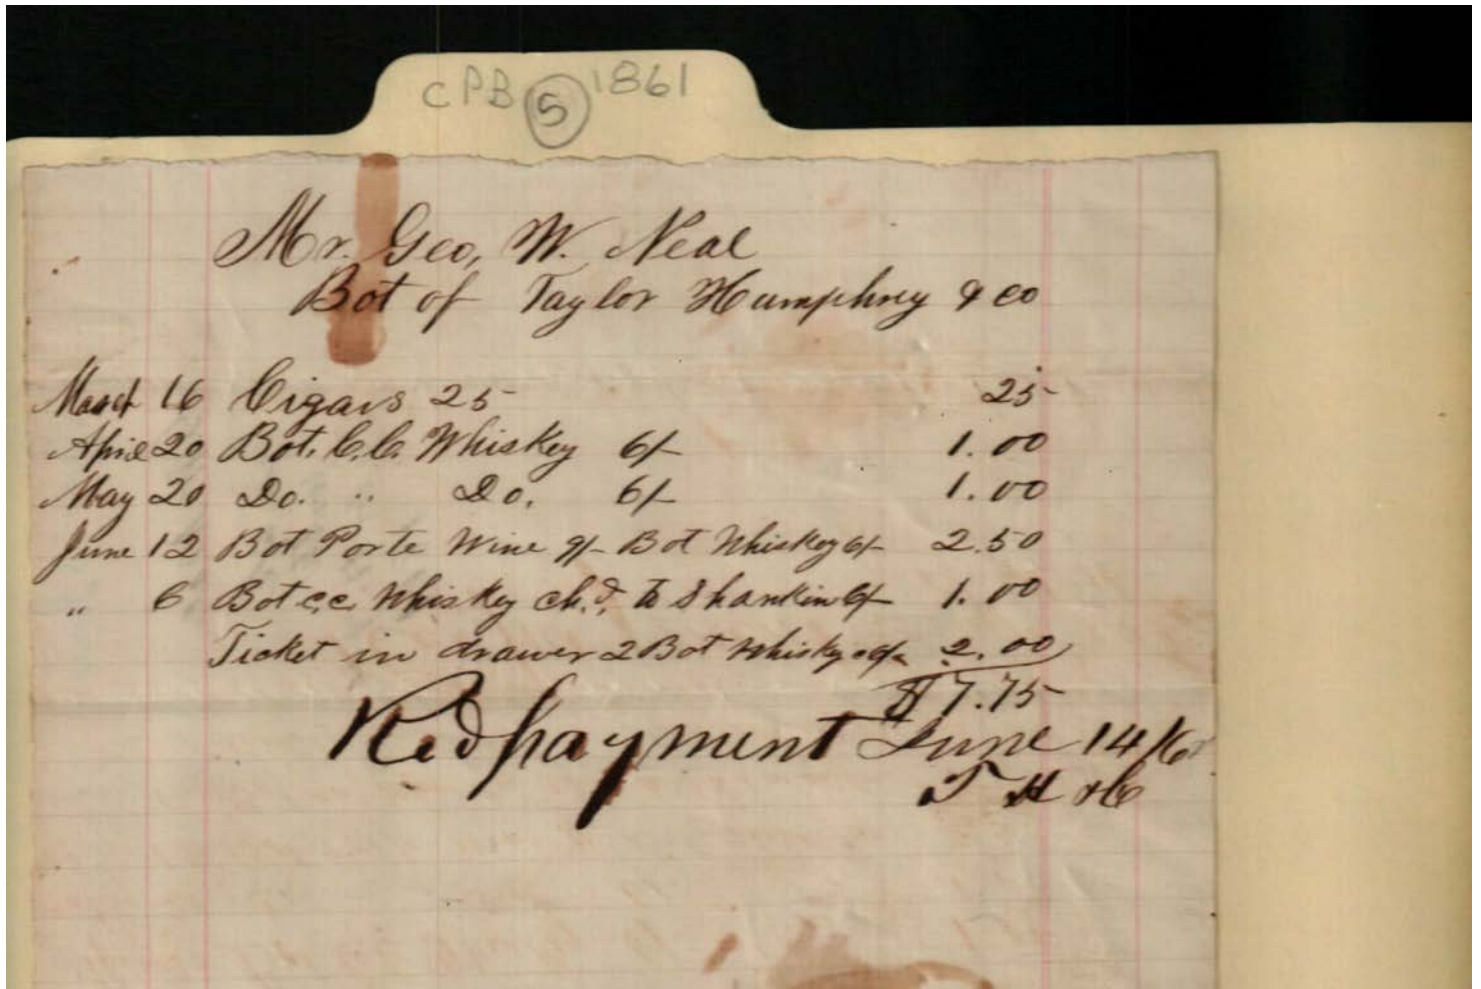 CPB (5) 1861
Mr. Geo, W. Neal
Bot of Taylor Humphrey & co
March 16 Cigars 25 25
April 20 Bot. C.C. Whiskey 6/- 1.00
May 20 Do. " Do. 6/- 1.00
June 12 Bot Porte Wine 9/- Bot Whiskey 6/- 2.50
" 6 Bot c.c Whiskey ch.d. to Shanklin 6/- 1.00
Ticket in drawer 2 Bot Whiskey 6/- 2.00
$7.75
Recd payment June 14/6
T H & Co